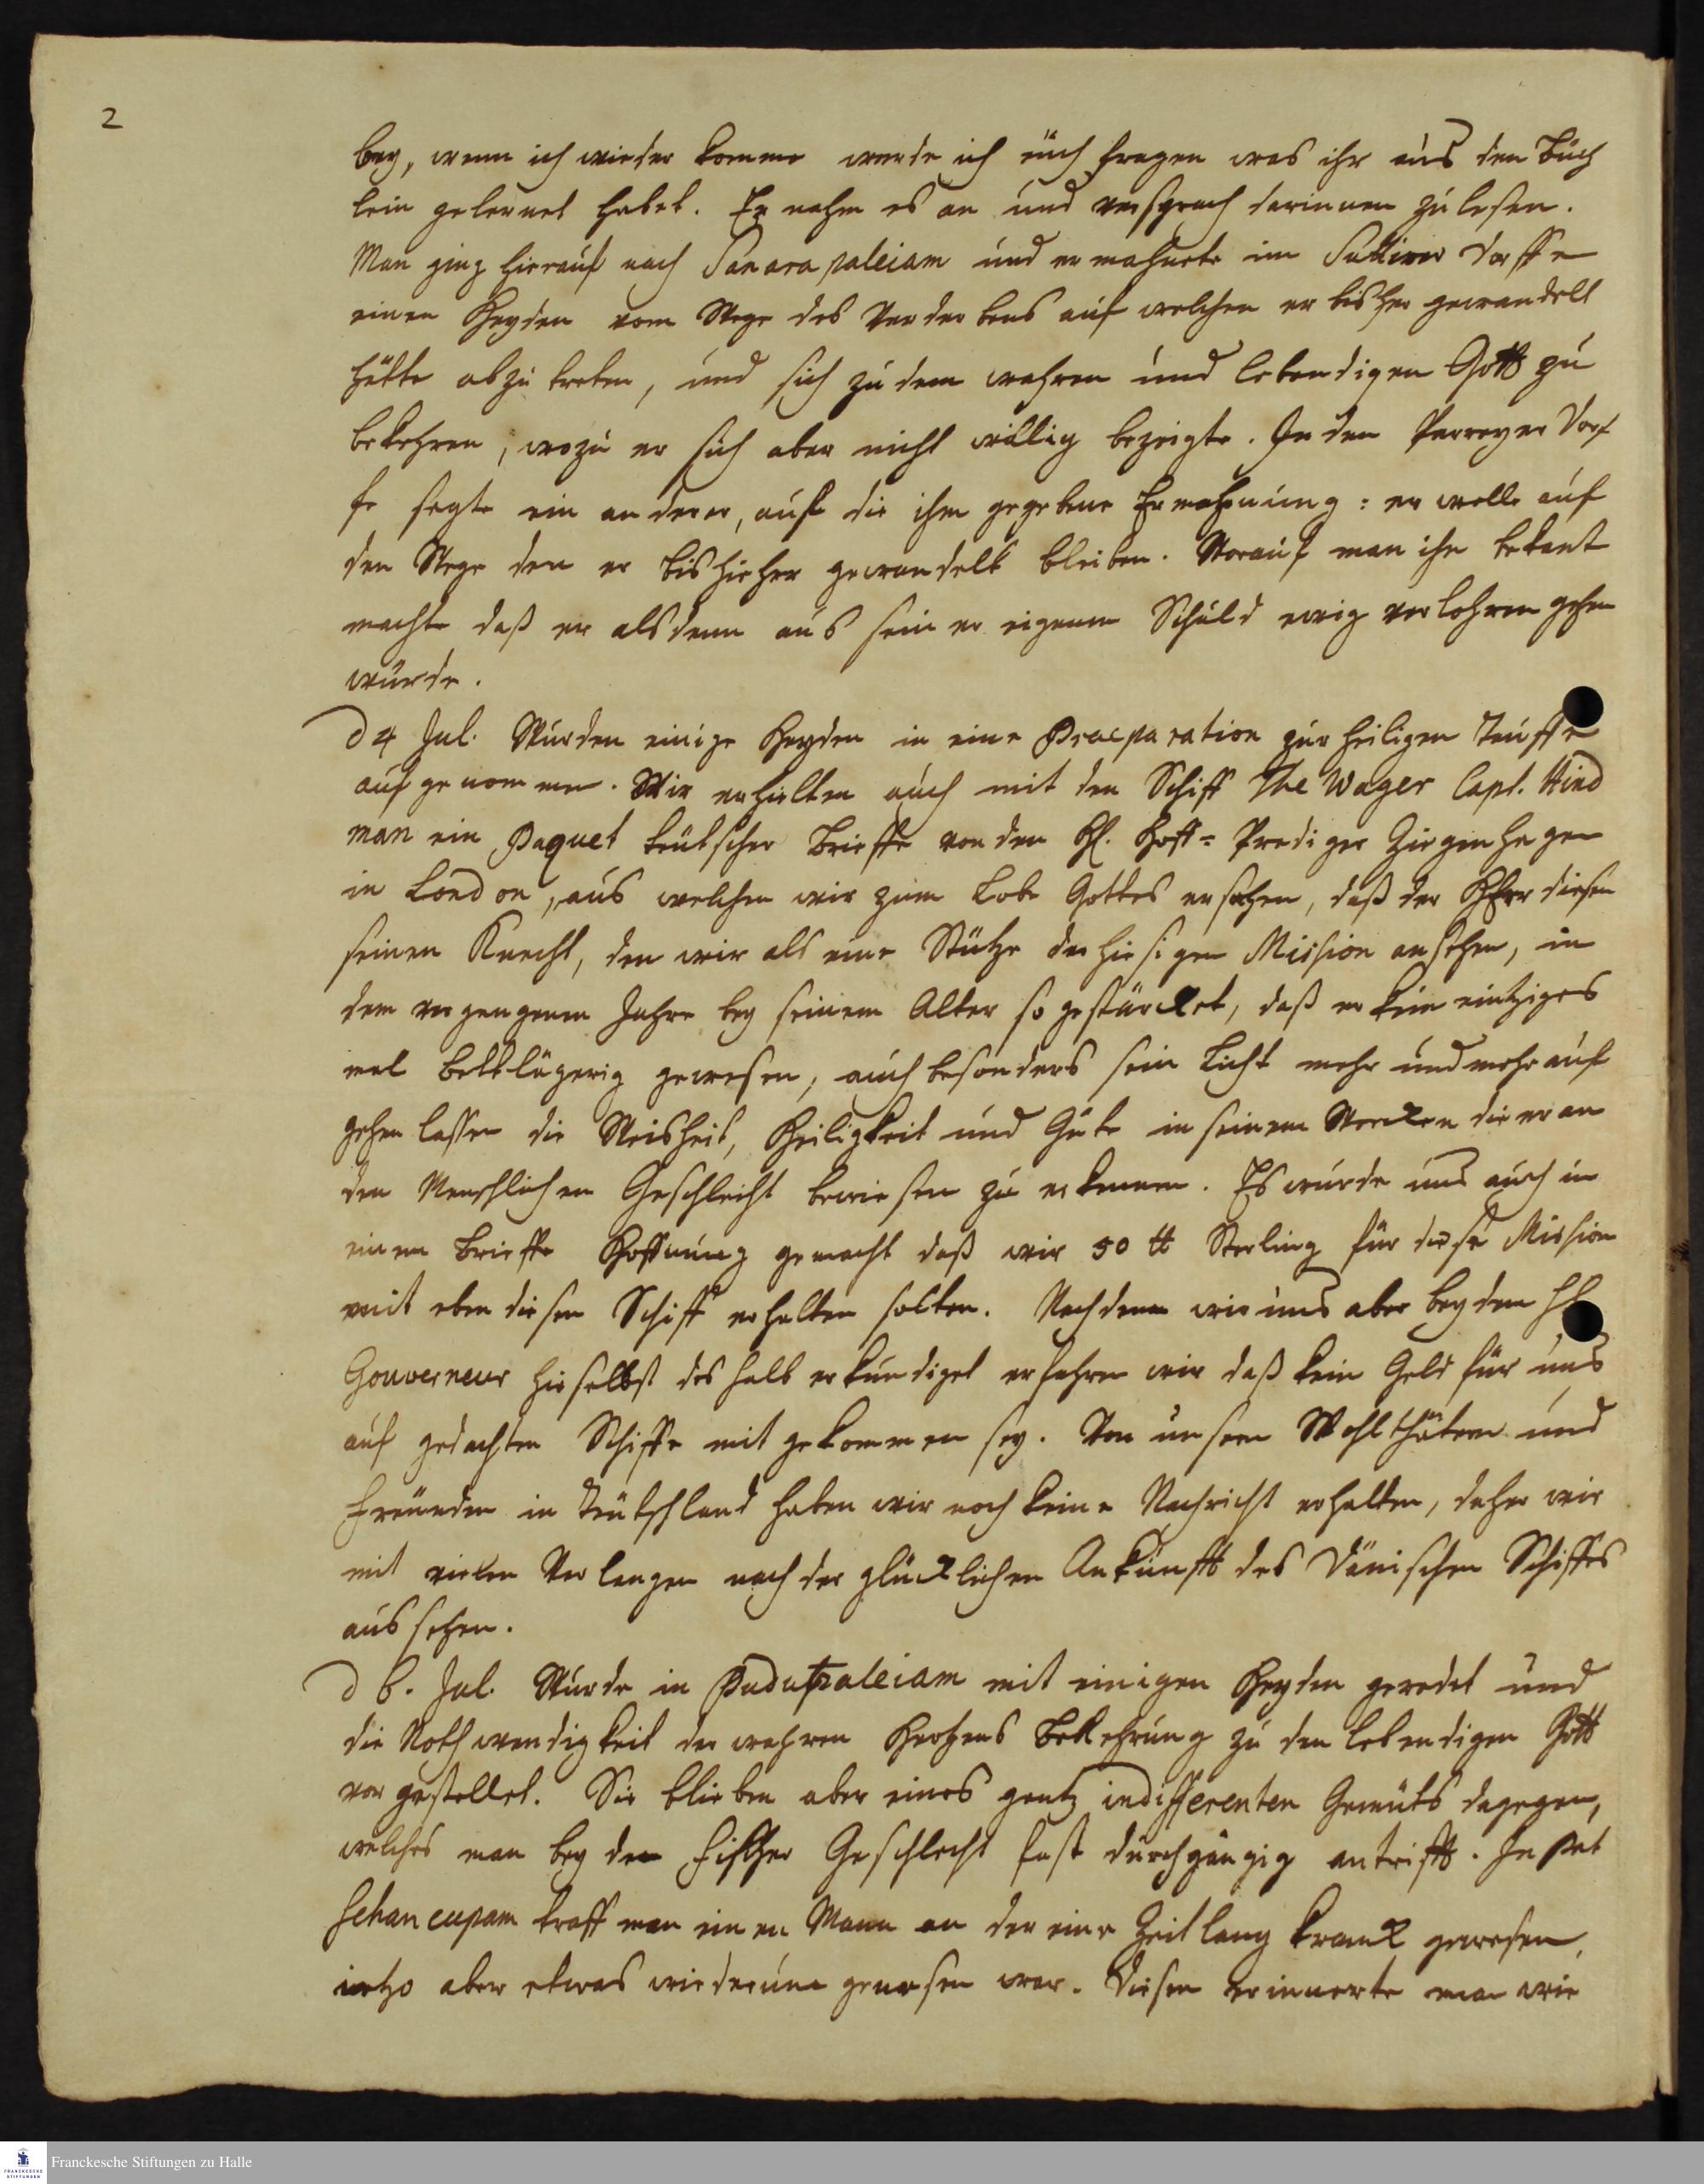 2
bey, wenn ich wieder komme werde ich euch fragen was ihr aus den Büch
lein gelernet habet. Er nahm es an und versprach darinnen zu lesen.
Man ging hierauf nach Sanarapaleiam und ermahnete im Suttirer Dorffe
einen Heyden vom Wege des Verderbens auf welchen er bisher gewandelt
hätte abzutreten, und sich zu dem wahren und lebendigen Gott zu
bekehren, wozu er sich aber nicht willig bezeigte. In den Parreyer Dorf
fe sagte ein anderer, auf die ihm gegebene Ermahnung: er wolle auf
den Wege den er bishieher gewandelt bleiben. Worauf man ihn bekant
machte daß er alsdenn aus seiner eigenen Schuld ewig verlohren gehen
würde.
d 4 Jul. Wurden einige Heyden in eine Praeparation zur heiligen Tauffe
aufgenommen. Wir erhielten auch mit den Schiff The Wager Capt. Hind
man ein Paquet teutscher Brieffe von den H. Hoff-Prediger Ziegenhagen
in London, aus welchen wir zum Lobe Gottes ersahen, daß der HErr diesen
seinen Knecht, den wir als eine Stütze der hiesigen Mission ansehen, in
dem vergangenen Jahre bey seinem Alter so gestärcket, daß er kein eintziges
mal bettlägerig gewesen, auch besonders sein Licht mehr und mehr auf
gehen lassen die Weisheit, Heiligkeit und Güte in seinem Wercken die er an
den Menschlichen Geschlecht bewiesen zu erkennen. Es wurde uns auch in
einem Brieffe Hoffnung gemacht daß wir 50 tt Sterling für diese Mission
mit eben diesen Schiff erhalten solten. Nachdem wir uns aber bey dem H
Gouverneur hieselbst deshalb erkundiget erfahren wir daß kein Geld für uns
auf gedachten Schiffe mit gekommen sey. Von unsern Wohlthätern und
Freunden in Teutschland haben wir noch keine Nachricht erhalten, daher wir
mit vielen Verlangen nach der glücklichen Ankunfft des Dänischen Schiffes
aus sehen.
d 6. Jul. Wurde in Pudupaleiam mit einigen Heyden geredet und
die Nothwendigkeit der wahren Hertzens Bekehrung zu den lebendigen Gott
vorgestellet. Sie blieben aber eines gantz indifferenten Gemüts dagegen,
welches man bey den Fischer Geschlecht fast durchgängig antrifft. In Pat
schancupam traff man einen Mann an der eine Zeitlang kranck gewesen,
ietzo aber etwas wiederum genesen war. Diesen erinnerte man wie
Franckesche Stiftungen zu Halle
FRANCKESCHE
STIFTUNGEN